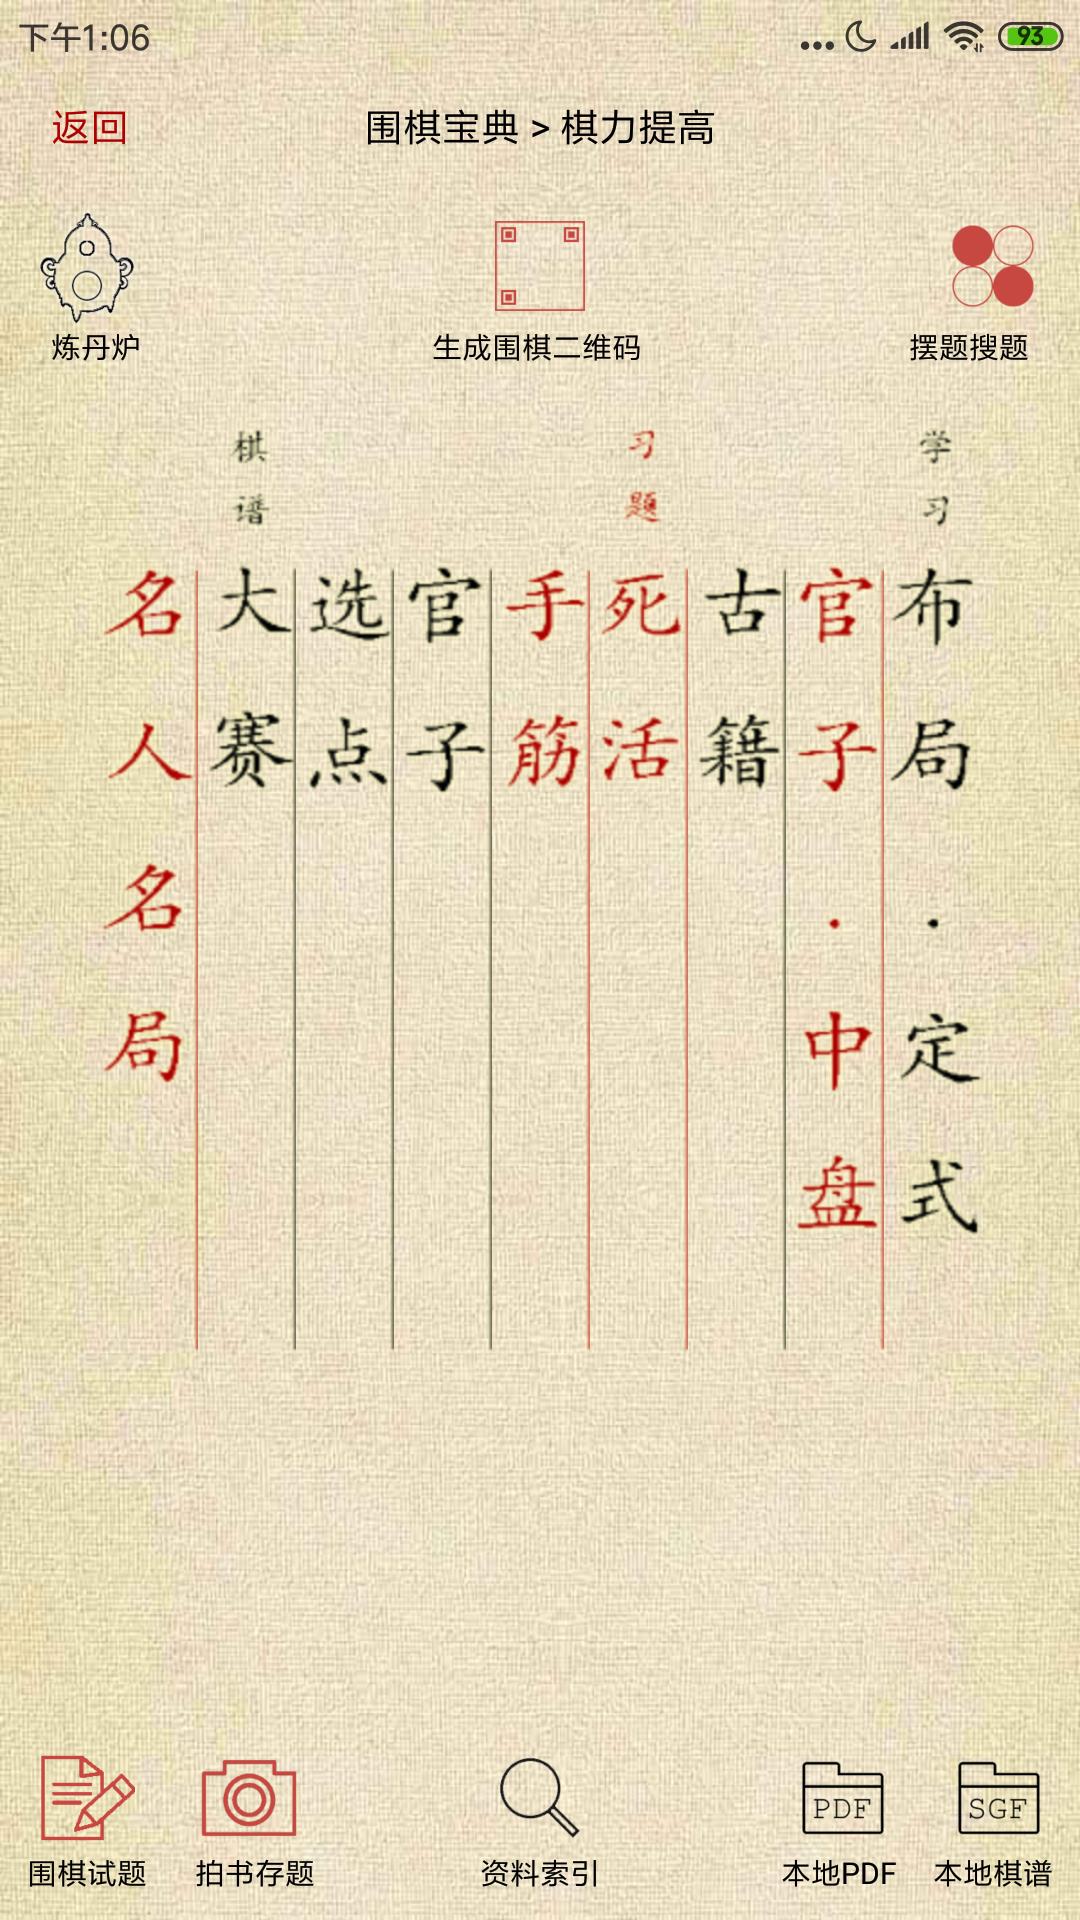 下午1:06
93
返回
围棋宝典 > 棋力提高
炼丹炉
生成围棋二维码
摆题搜题
学习
习题
棋谱
布局·定式
官子·中盘
古籍
死活
手筋
官子
选点
大赛
名人名局
PDF
SGF
围棋试题
拍书存题
资料索引
本地PDF
本地棋谱